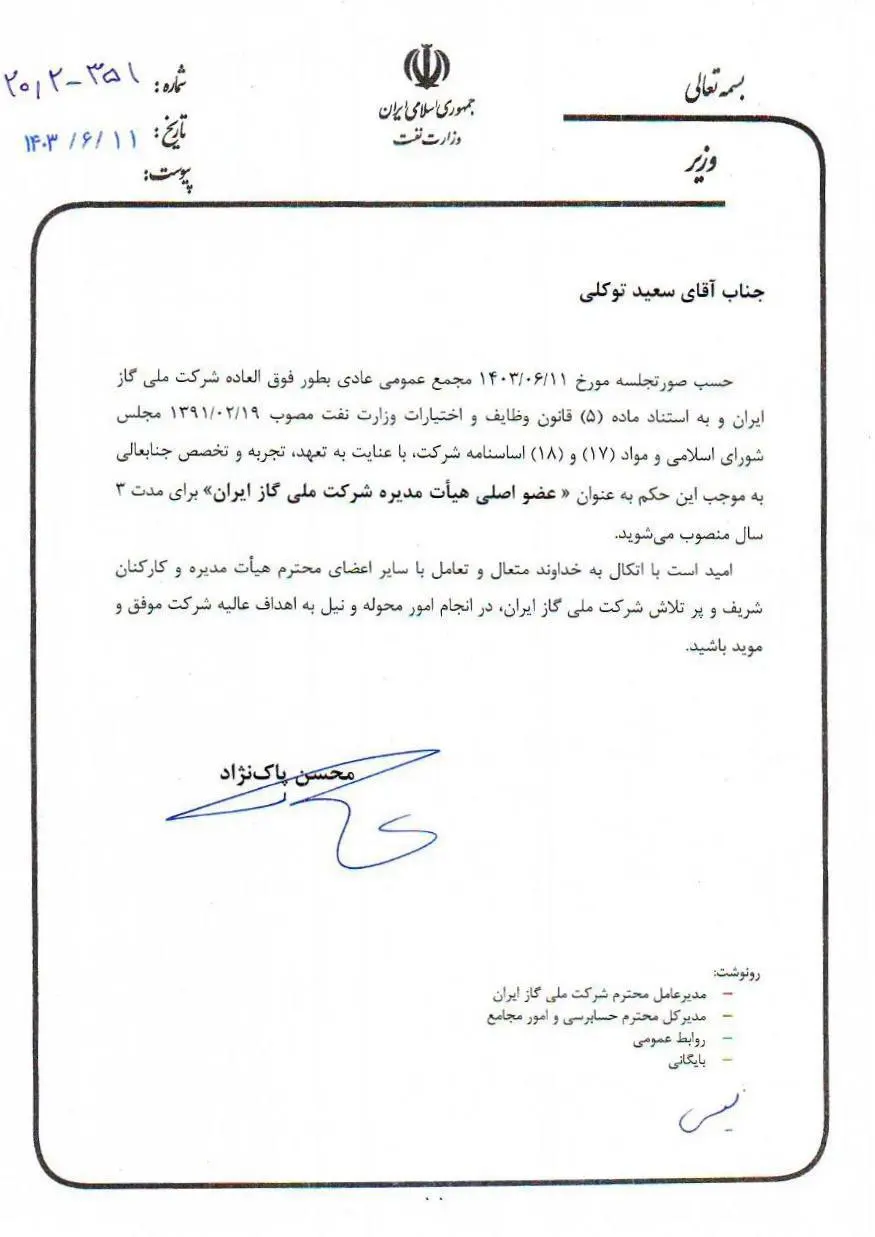 بسمه تعالی
جمهوری اسلامی ایران
وزارت نفت
وزیر
شماره: ۳۵۱-۲۰/۲
تاریخ: ۱۴۰۳/۶/۱۱
پیوست:
جناب آقای سعید توکلی
حسب صورتجلسه مورخ ۱۴۰۳/۰۶/۱۱ مجمع عمومی عادی بطور فوق العاده شرکت ملی گاز
ایران و به استناد ماده (۵) قانون وظایف و اختیارات وزارت نفت مصوب ۱۳۹۱/۰۲/۱۹ مجلس
شورای اسلامی و مواد (۱۷) و (۱۸) اساسنامه شرکت، با عنایت به تعهد، تجربه و تخصص جنابعالی
به موجب این حکم به عنوان « عضو اصلی هیأت مدیره شرکت ملی گاز ایران» برای مدت ۳
سال منصوب می‌شوید.
امید است با اتکال به خداوند متعال و تعامل با سایر اعضای محترم هیأت مدیره و کارکنان
شریف و پر تلاش شرکت ملی گاز ایران، در انجام امور محوله و نیل به اهداف عالیه شرکت موفق و
موید باشید.
محسن پاک‌نژاد
رونوشت:
– مدیرعامل محترم شرکت ملی گاز ایران
– مدیرکل محترم حسابرسی و امور مجامع
– روابط عمومی
– بایگانی